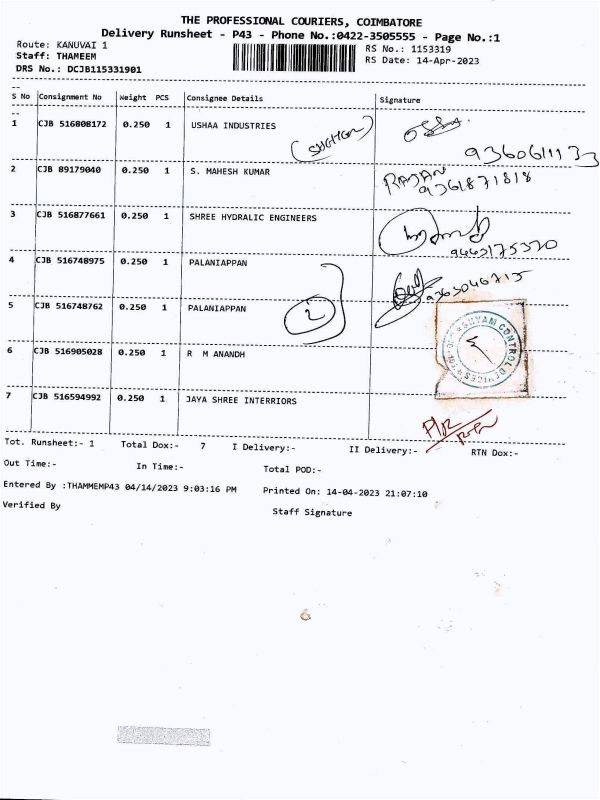 THE PROFESSIONAL COURIERS, COIMBATORE
Delivery Runsheet - P43 - Phone No.:0422-3505555 - Page No.:1
Route: KANUVAI 1
RS No.: 1153319
Staff: THAMEEM
RS Date: 14-Apr-2023
DRS No.: DCJB115331901
S No Consignment No Weight PCS Consignee Details Signature
1 CJB 516808172 0.250 1 USHAA INDUSTRIES
9360611133
2 CJB 89179040 0.250 1 S. MAHESH KUMAR RAJAN
9361871818
3 CJB 516877661 0.250 1 SHREE HYDRALIC ENGINEERS
9443175370
4 CJB 516748975 0.250 1 PALANIAPPAN
9363046715
5 CJB 516748762 0.250 1 PALANIAPPAN 2
6 CJB 516905028 0.250 1 R M ANANDH
CONTROL DEVICES
7 CJB 516594992 0.250 1 JAYA SHREE INTERRIORS
Tot. Runsheet:- 1 Total Dox:- 7 I Delivery:- II Delivery:- RTN Dox:-
Out Time:- In Time:- Total POD:-
Entered By :THAMMEMP43 04/14/2023 9:03:16 PM Printed On: 14-04-2023 21:07:10
Verified By Staff Signature